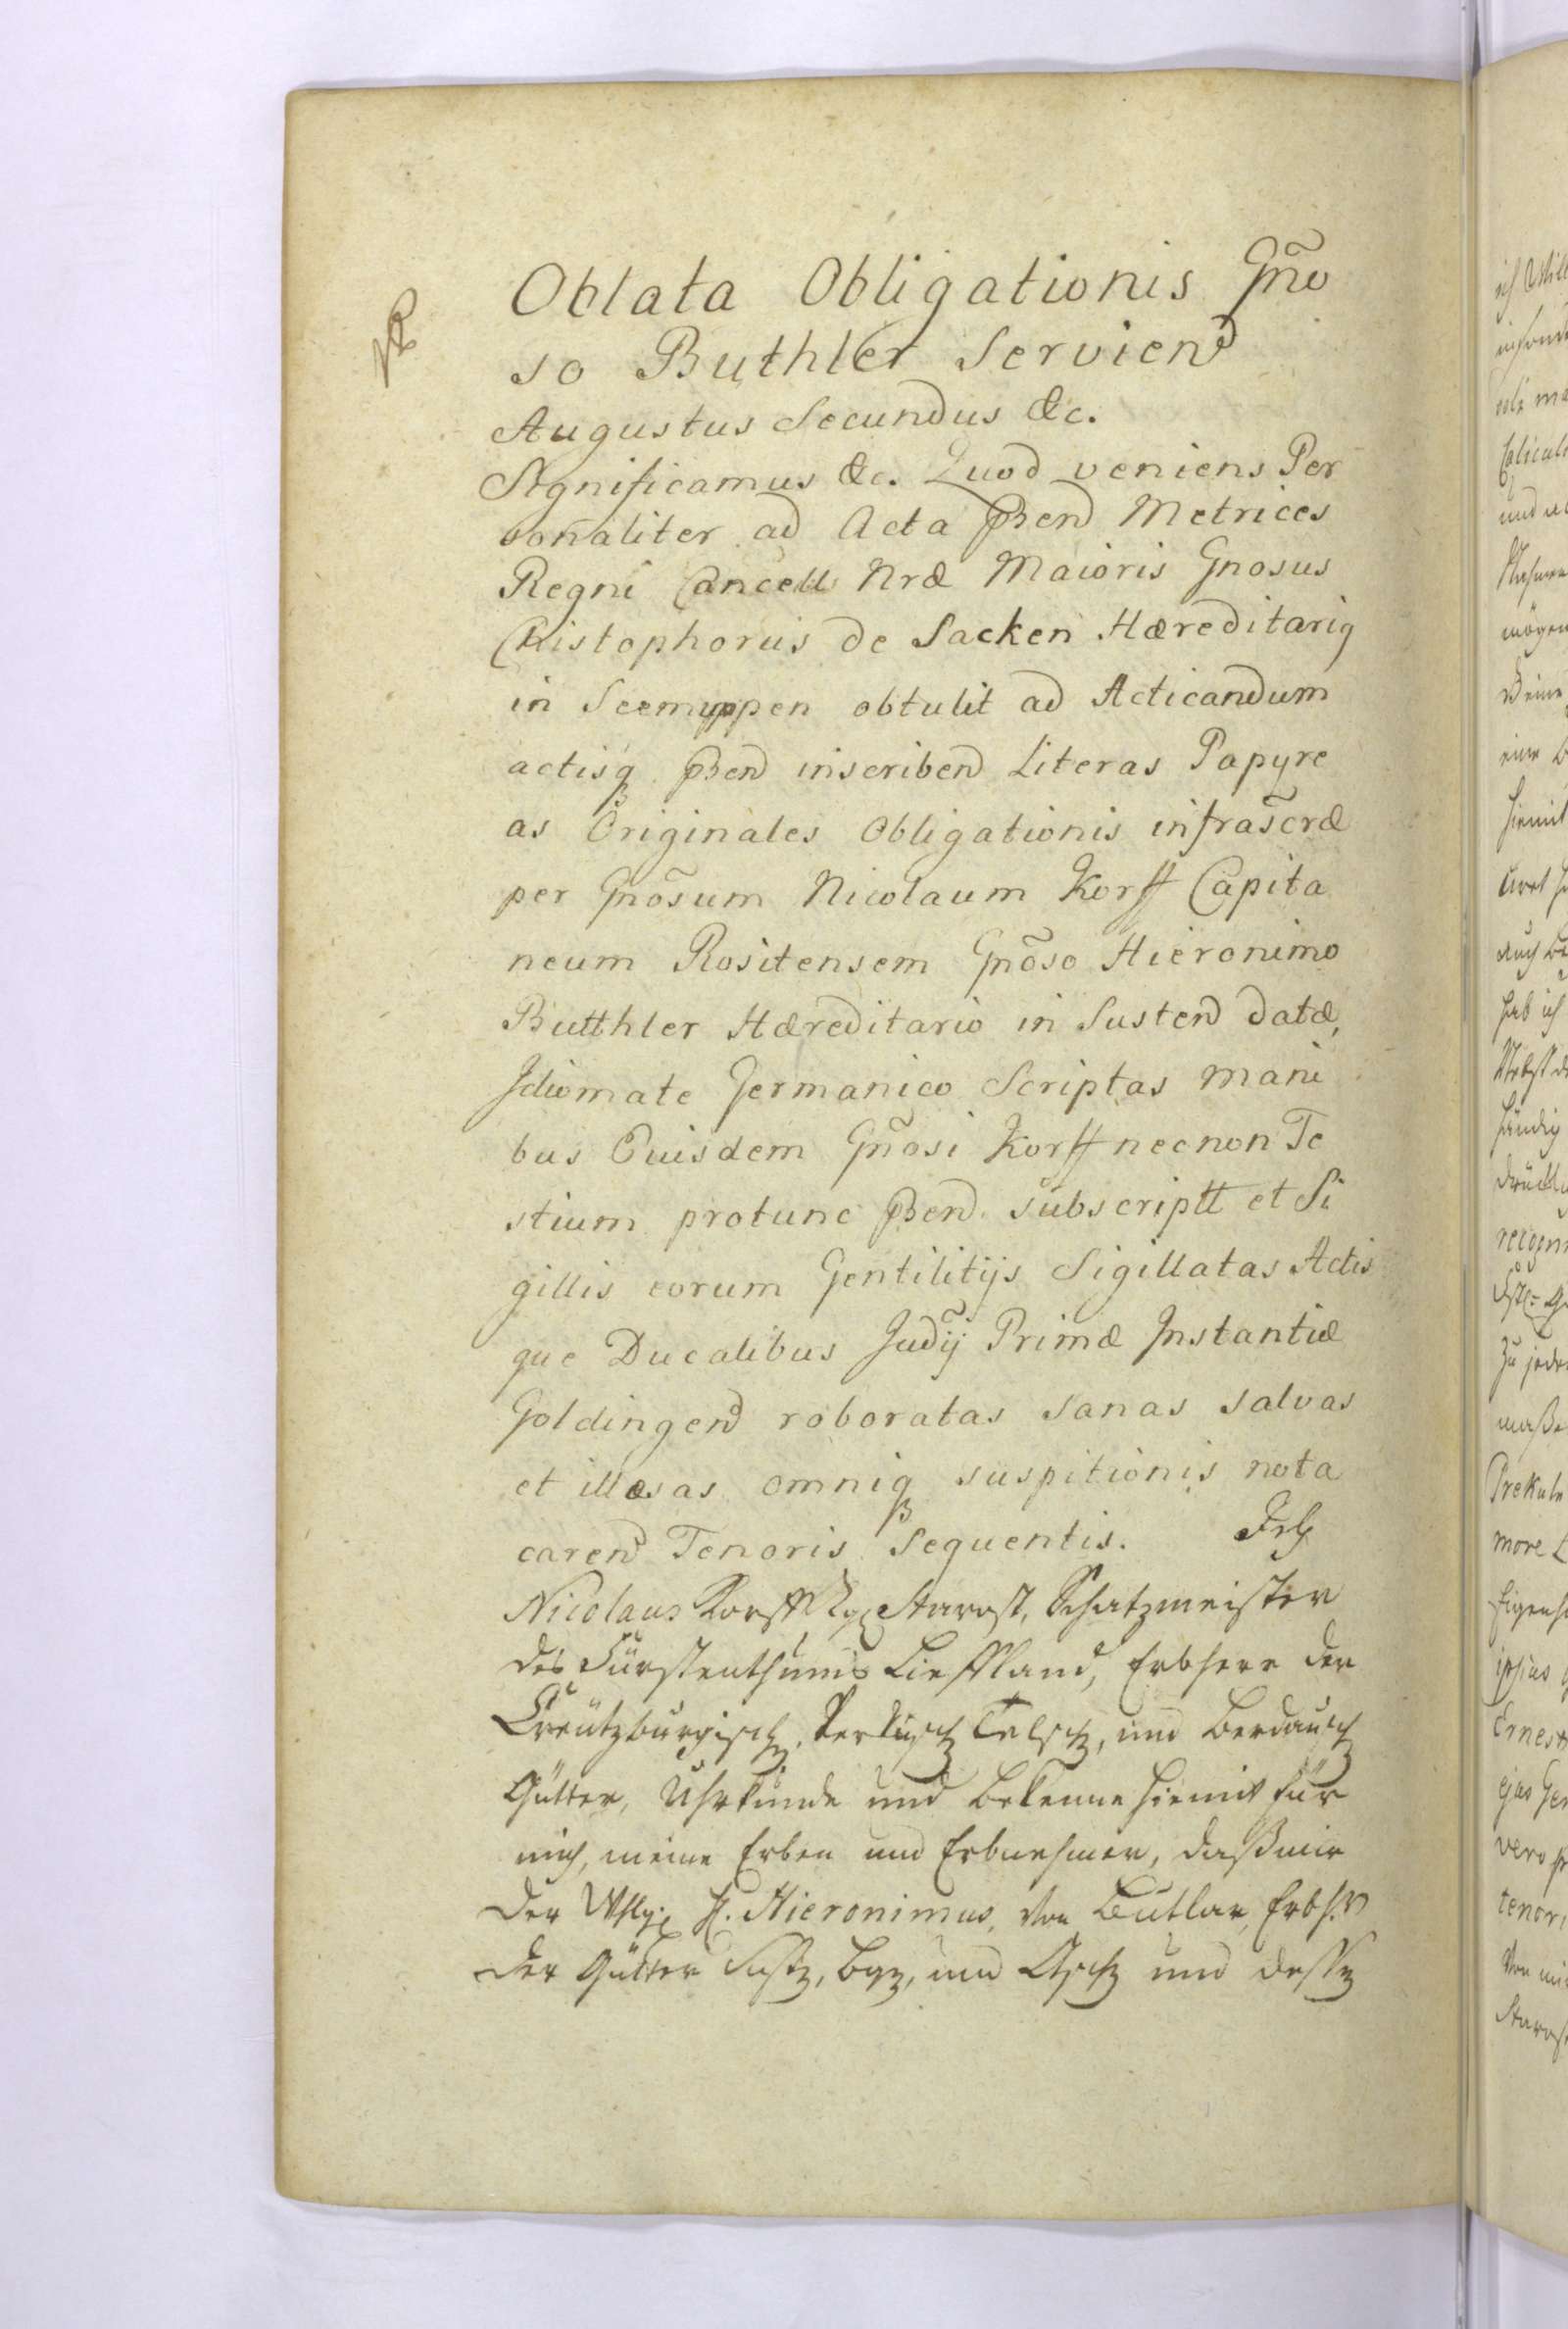 Oblata Obligationis Gño
so Buthler Serviend
Augustus Secundus &c.
Significamus &c. Quod veniens Per
sonaliter ad Acta pñend Metrices
Regni Cancell Nræ Maioris Gnosus
Christophorus de Sacken Hæreditarig
in Seemuppen obtulit ad Acticandum
actisq pñend inscribend Literas Papyre
as Originales Obligationis infrascræ
per Gnõsum Nicolaum Korff Capita
neum Rositensem Gnõso Hieronimo
Butthler Hæreditario in Sustend datæ,
Idiomate Germanico Scriptas mani
bus Eiusdem Gñosi Korff necnon Te
stium protunc pñend subscriptt et Si
gillis eorum Gentilitijs Sigillatas Actis
que Ducalibus Judij Primæ Instantiæ
Goldingend roboratas sanas salvas
et illæsas omniq suspitionis nota
carend Tenoris Sequentis. Ich
Nicolaus Korff Starost, Schatzmeister
des Fürstenthums Lieffland, Erbherr der
Creutzburgisch, Telsch, und
Gütter, Uhrkunde und bekenne hiemit für
mich, meine Erben und Erbnehmer, daß mir
der H. Hieronimus von Butlar, Erbhr
der Gütter und dessen